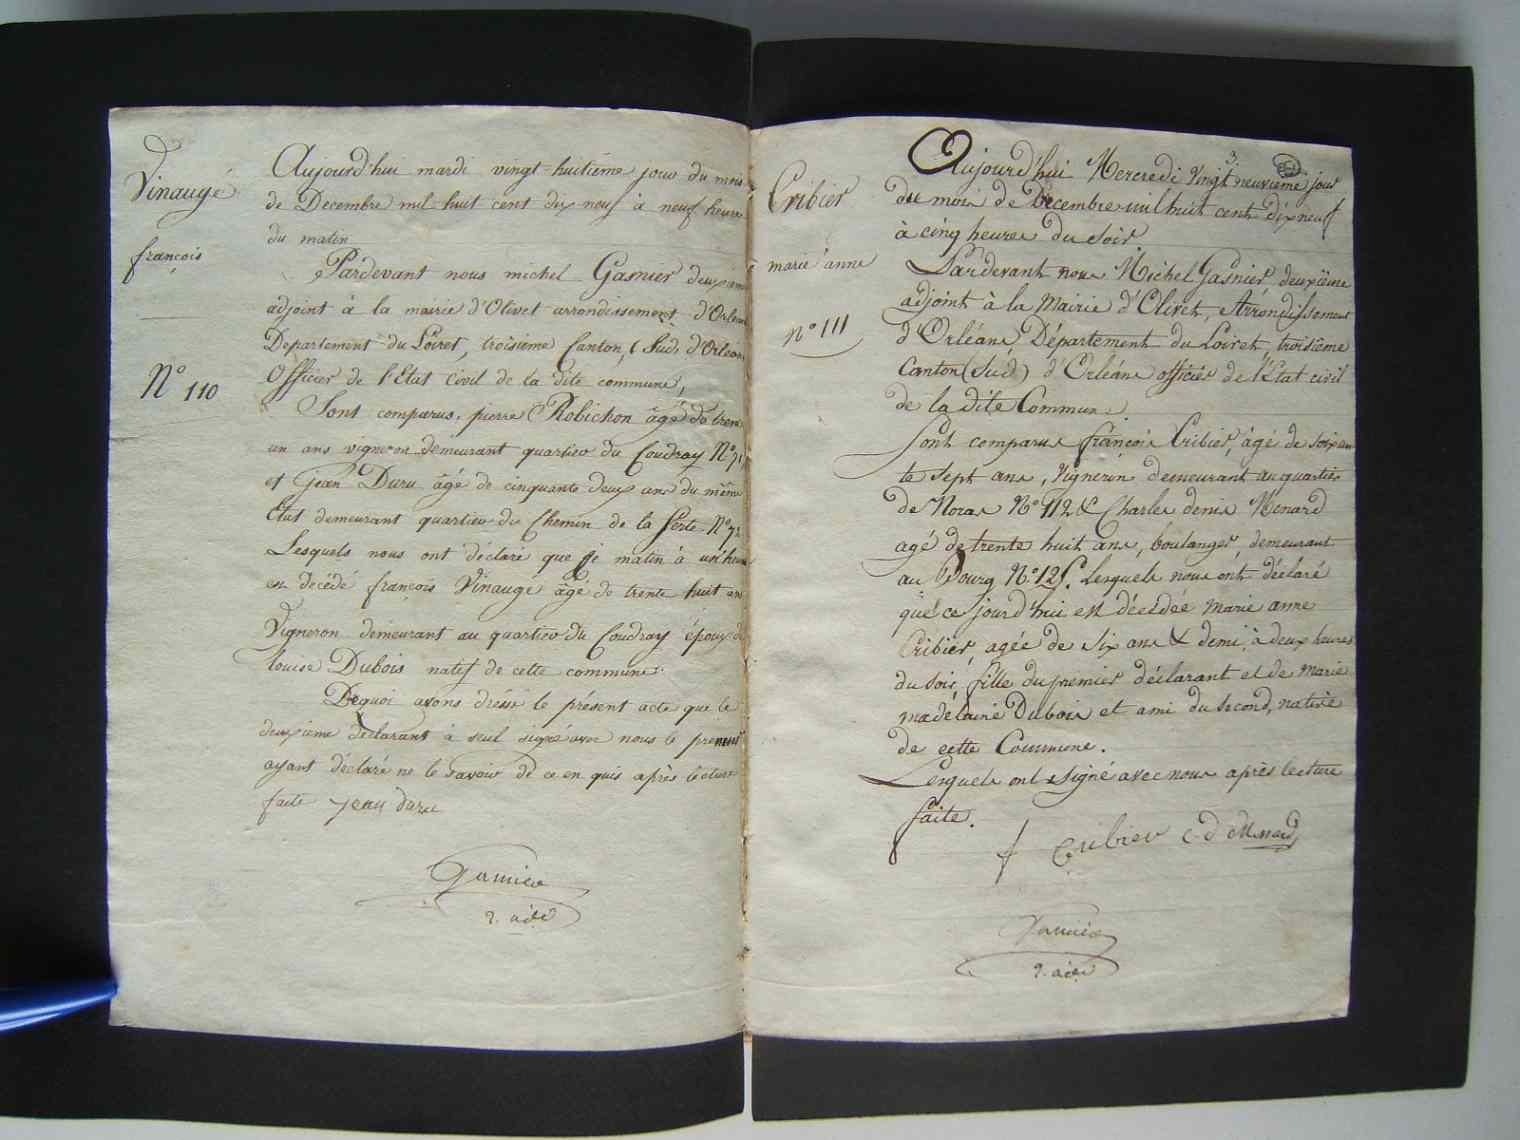 Vinaugé
françois
N° 110
Aujourd'hui mardi vingt huitième jour du mois
de Decembre mil huit cent dix neuf à neuf heures
du matin
Pardevant nous michel Gasnier deuxième
adjoint à la mairie d'Olivet arrondissement d'Orléans
Departement du Loiret, troisième Canton, (Sud) d'Orléans
Officier de l'Etat Civil de la dite commune,
Sont comparus, pierre Robichon âgé de trente
un ans vigneron demeurant quartier du Coudray N° 71
et jean Duru âgé de cinquante deux ans du même
Etat demeurant quartier du Chemin de la ferté N° 72
Lesquels nous ont déclaré que ce matin à une heure
est decédé françois Vinaugé âgé de trente huit ans
Vigneron demeurant au quartier du Coudray époux de
louise Dubois natif de cette commune.
Dequoi avons dréssé le présent acte que le
deuxième déclarant à seul signé avec nous le premier
ayant déclaré ne le savoir de ce enquis après lecture
faite jean duru
Gasnier
2. adj.
Cribier
marie anne
n° 111
Aujourd'hui Mercredi Vingt neuvieme jour
du mois de Decembre mil huit cent dix neuf
à cinq heures du Soir
Pardevant nous Michel Gasnier deuxième
adjoint à la Mairie d'Olivet, Arrondissement
d'Orléans Département du Loiret troisième
Canton (Sud) d'Orléans officier de l'Etat civil
de la dite Commune.
Sont comparus françois Cribier, âgé de soixan
te sept ans, Vigneron demeurant au quartier
de Noras N° 112 & Charles denis Menard
agé de trente huit ans, boulanger, demeurant
au Bourg N° 125. Lesquels nous ont déclaré
que ce jourd'hui est décédée Marie anne
Cribier, agée de Six ans & demi, à deux heures
du soir, fille du premier déclarant et de Marie
madelaine Dubois et ami du Second, native
de cette Commune.
Lesquels ont signé avec nous après lecture
faite.
f Cribier C-D Menard
Gasnier
2. adj.